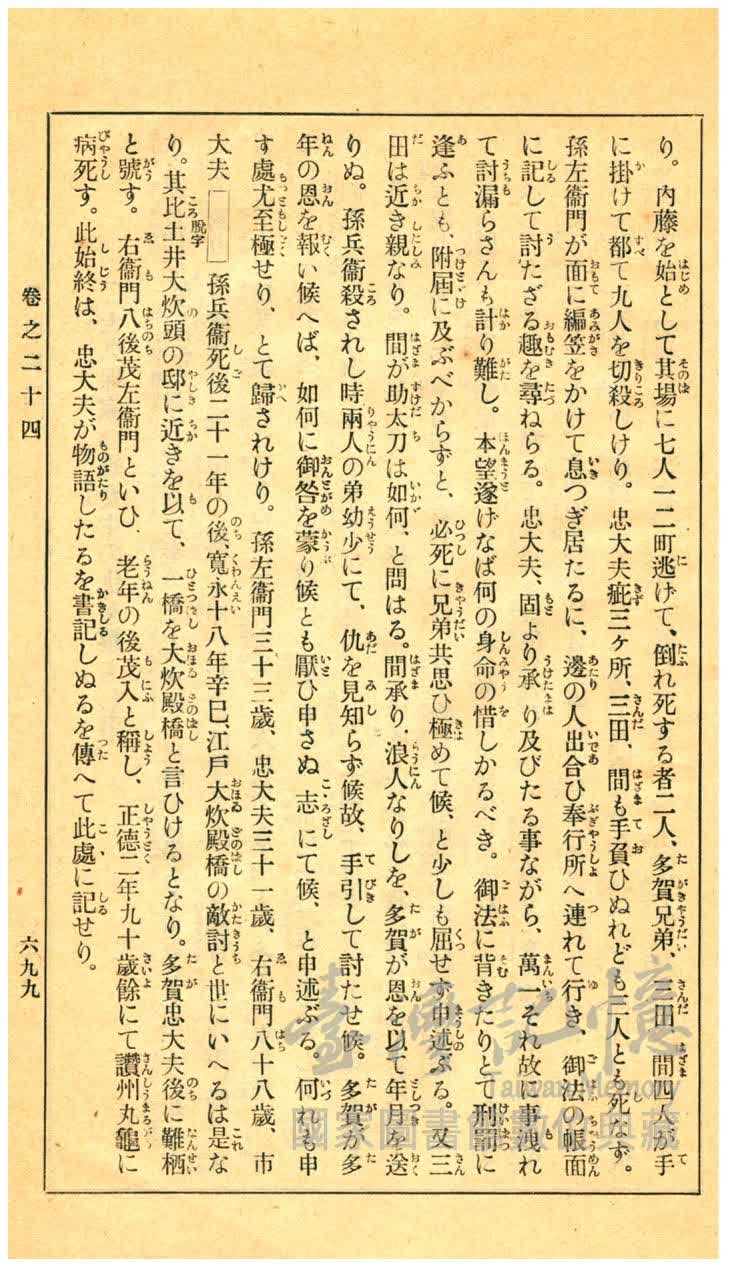 り。內藤を始として其場に七人一二町逃げて、倒れ死する者二人、多賀兄弟、三田、間四人が手
に掛けて都て九人を切殺しけり。忠大夫疵三ヶ所、三田、間も手負ひぬれども三人とも死なず。
孫左衞門が面に編笠をかけて息つぎ居たるに、邊の人出合ひ奉行所へ連れて行き、御法の帳面
に記して討たざる趣を尋ねらる。忠大夫、固より承り及びたる事ながら、萬一それ故に事洩れ
て討漏らさんも計り難し。本望遂げなば何の身命の惜しかるべき。御法に背きたりとて刑罰に
逢ふとも、附屆に及ぶべからずと、必死に兄弟共思ひ極めて候、と少しも屈せず申述ぶる。又三
田は近き親なり。間が助太刀は如何、と問はる。間承り、浪人なりしを、多賀が恩を以て年月を送
りぬ。孫兵衞殺されし時兩人の弟幼少にて、仇を見知らず候故、手引して討たせ候。多賀が多
年の恩を報い候へば、如何に御咎を蒙り候とも厭ひ申さぬ志にて候、と申述ぶる。何れも申
す處尤至極せり、とて歸されけり。孫左衞門三十三歲、忠大夫三十一歲、右衞門八十八歲、市
大夫 脫字 孫兵衞死後二十一年の後、寬永十八年辛巳、江戶大炊殿橋の敵討と世にいへるは是な
り。其比土井大炊頭の邸に近きを以て、一橋を大炊殿橋と言ひけるとなり。多賀忠大夫後に難栖
と號す。右衞門八後茂左衞門といひ、老年の後茂入と稱し、正德二年九十歲餘にて讚州丸龜に
病死す。此始終は、忠大夫が物語したるを書記しぬるを傳へて此處に記せり。
卷之二十四
六九九
臺灣記憶
Taiwan Memory
國家圖書館數位典藏